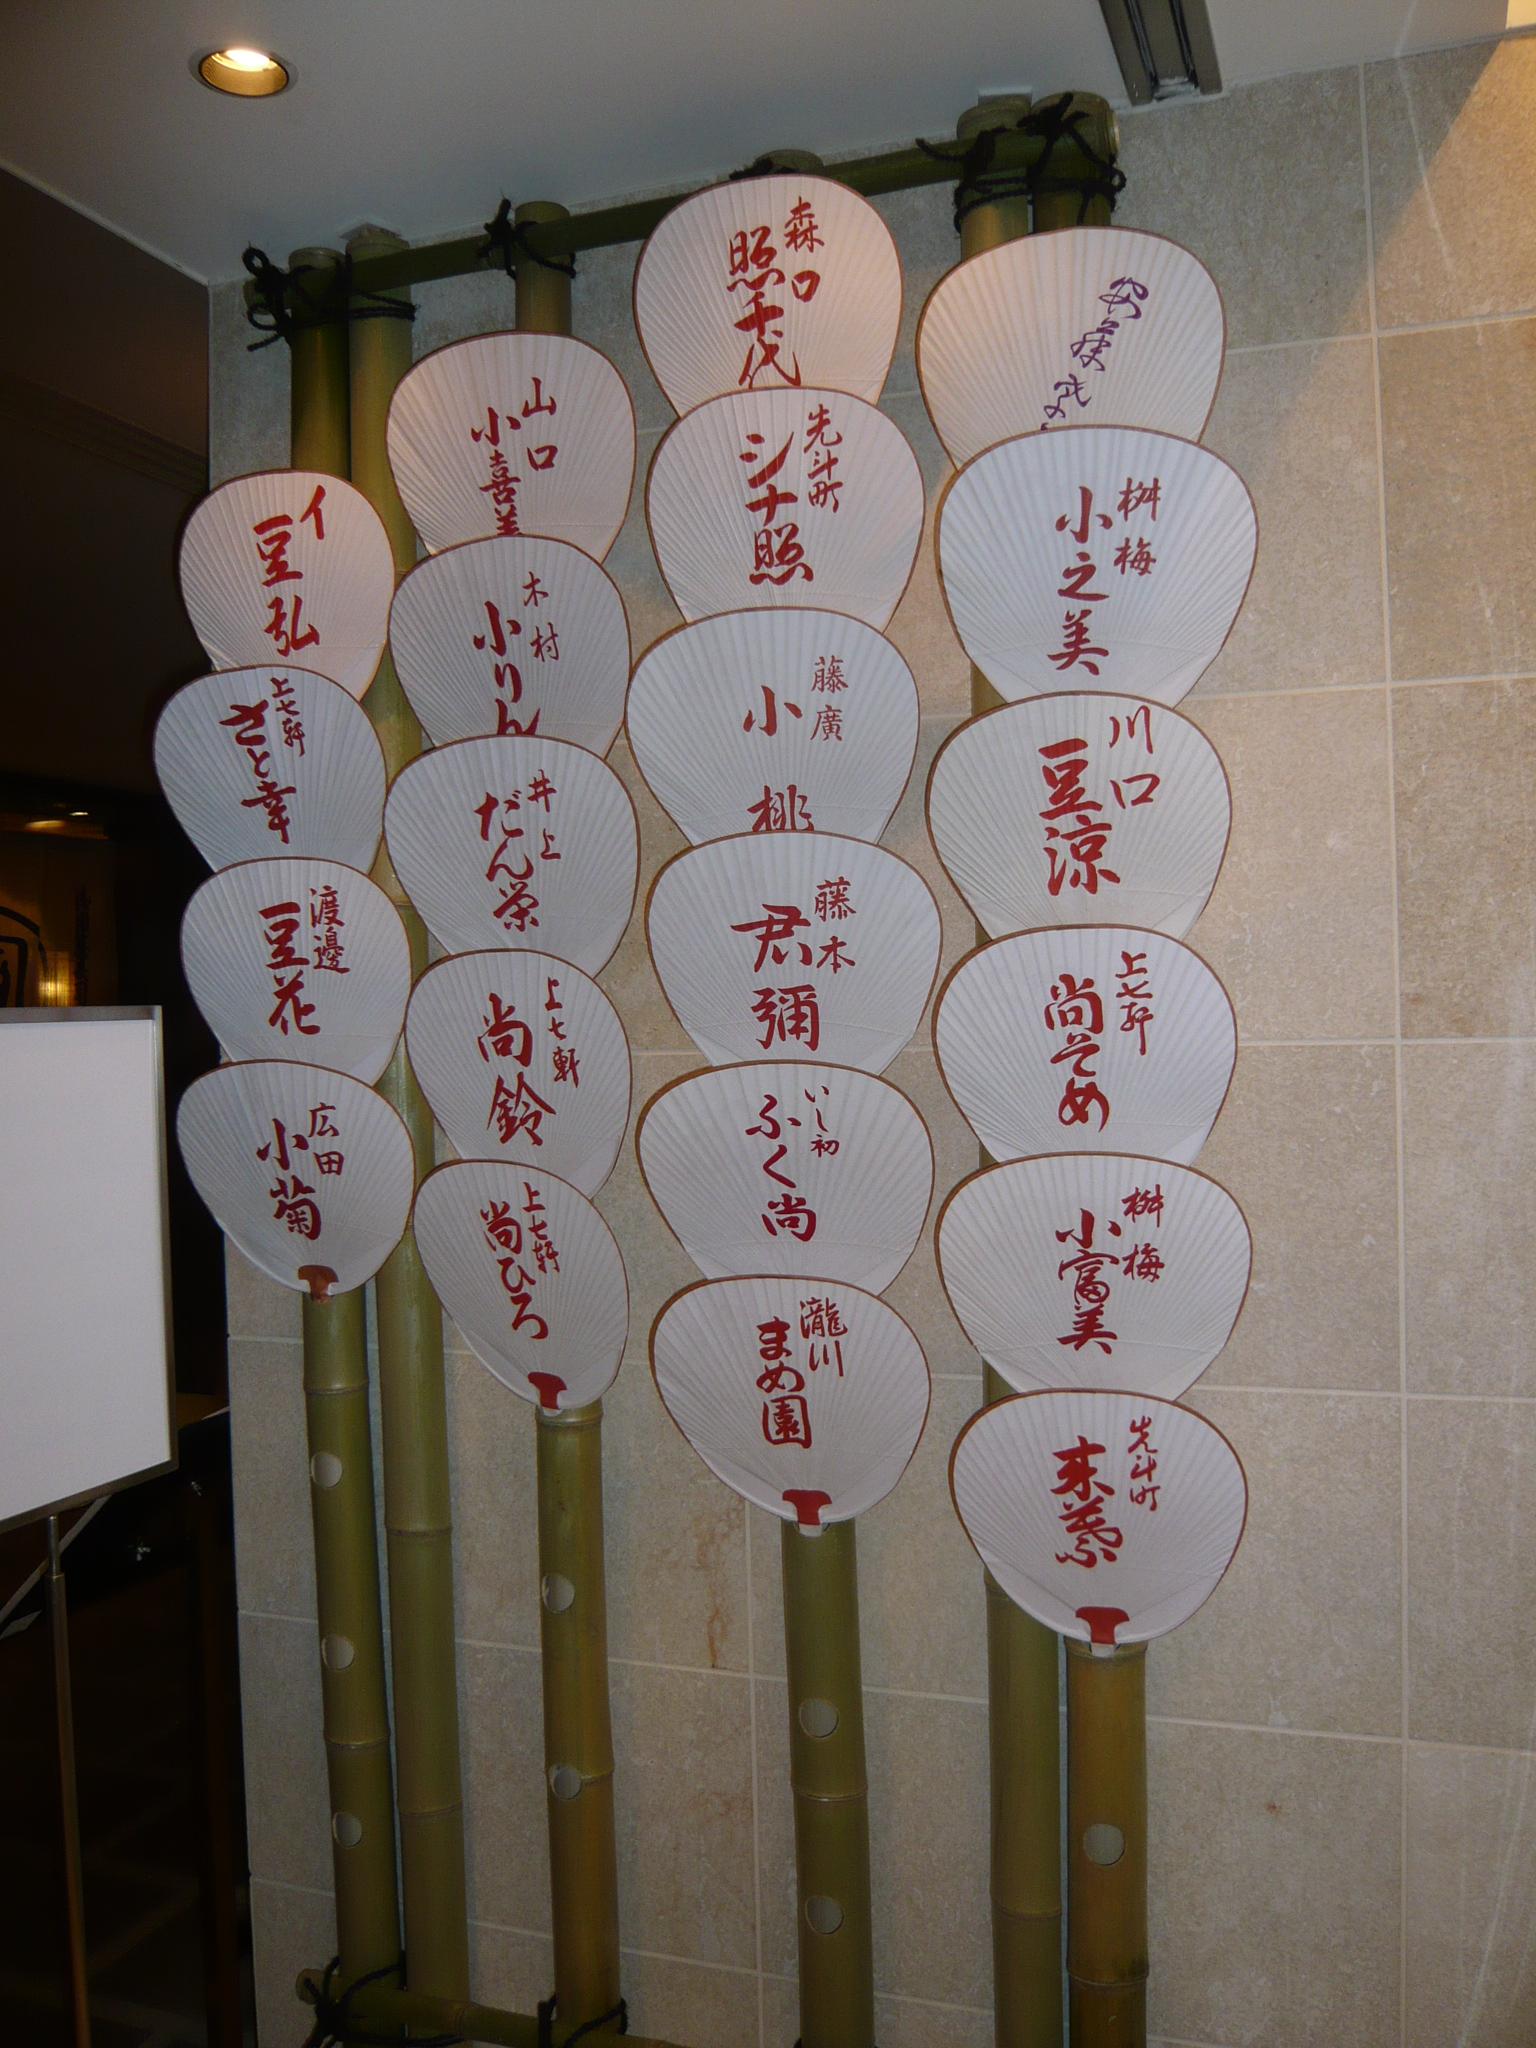 森口
照千代
先斗町
シナ照
藤廣
小桃
藤本
君彌
いし初
ふく尚
瀧川
まめ園
桝梅
小之美
川口
豆涼
上七軒
尚そめ
桝梅
小富美
先斗町
来葉
山口
小喜美
木村
小りん
井上
だん栄
上七軒
尚鈴
上七軒
尚ひろ
イ
豆弘
上七軒
さと幸
渡邊
豆花
広田
小菊